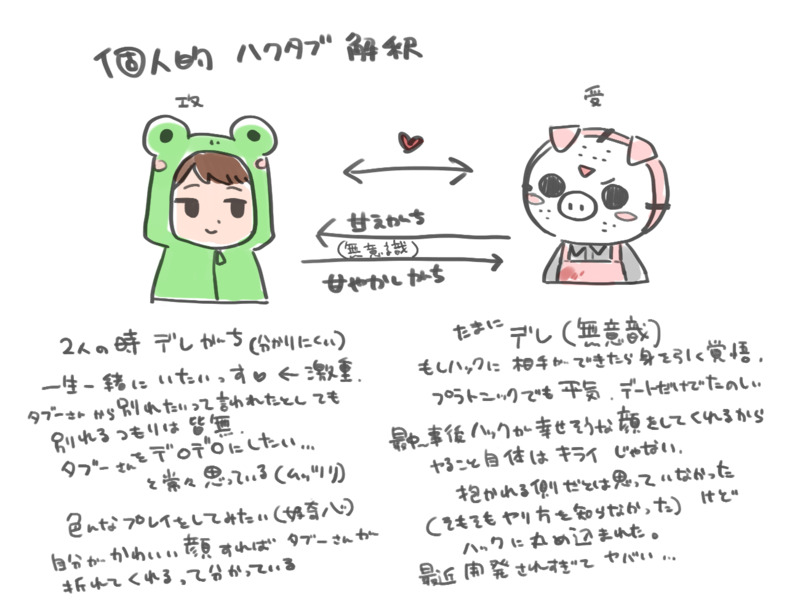 個人的 ハクタブ 解釈
攻
受
甘えがち
(無意識)
甘やかしがち
2人の時 デレがち(分かりにくい)
一生一緒にいたいっす♡ ← 激重.
タブーさんから別れたいって言われたとしても
別れるつもりは皆無.
タブーさんをデロデロにしたい…
と常々思っている(ムッツリ)
色んなプレイをしてみたい(好奇心)
自分がかわいい顔すればタブーさんが
折れてくれるって分かっている
たまに デレ(無意識)
もしハックに相手ができたら身を引く覚悟.
プラトニックでも平気.デートだけでたのしい
最中〜事後ハックが幸せそうな顔をしてくれるから
やること自体はキライじゃない.
抱かれる側だとは思っていなかった
(そもそもやり方を知らなかった)けど
ハックに丸め込まれた。
最近開発されすぎてヤバい…